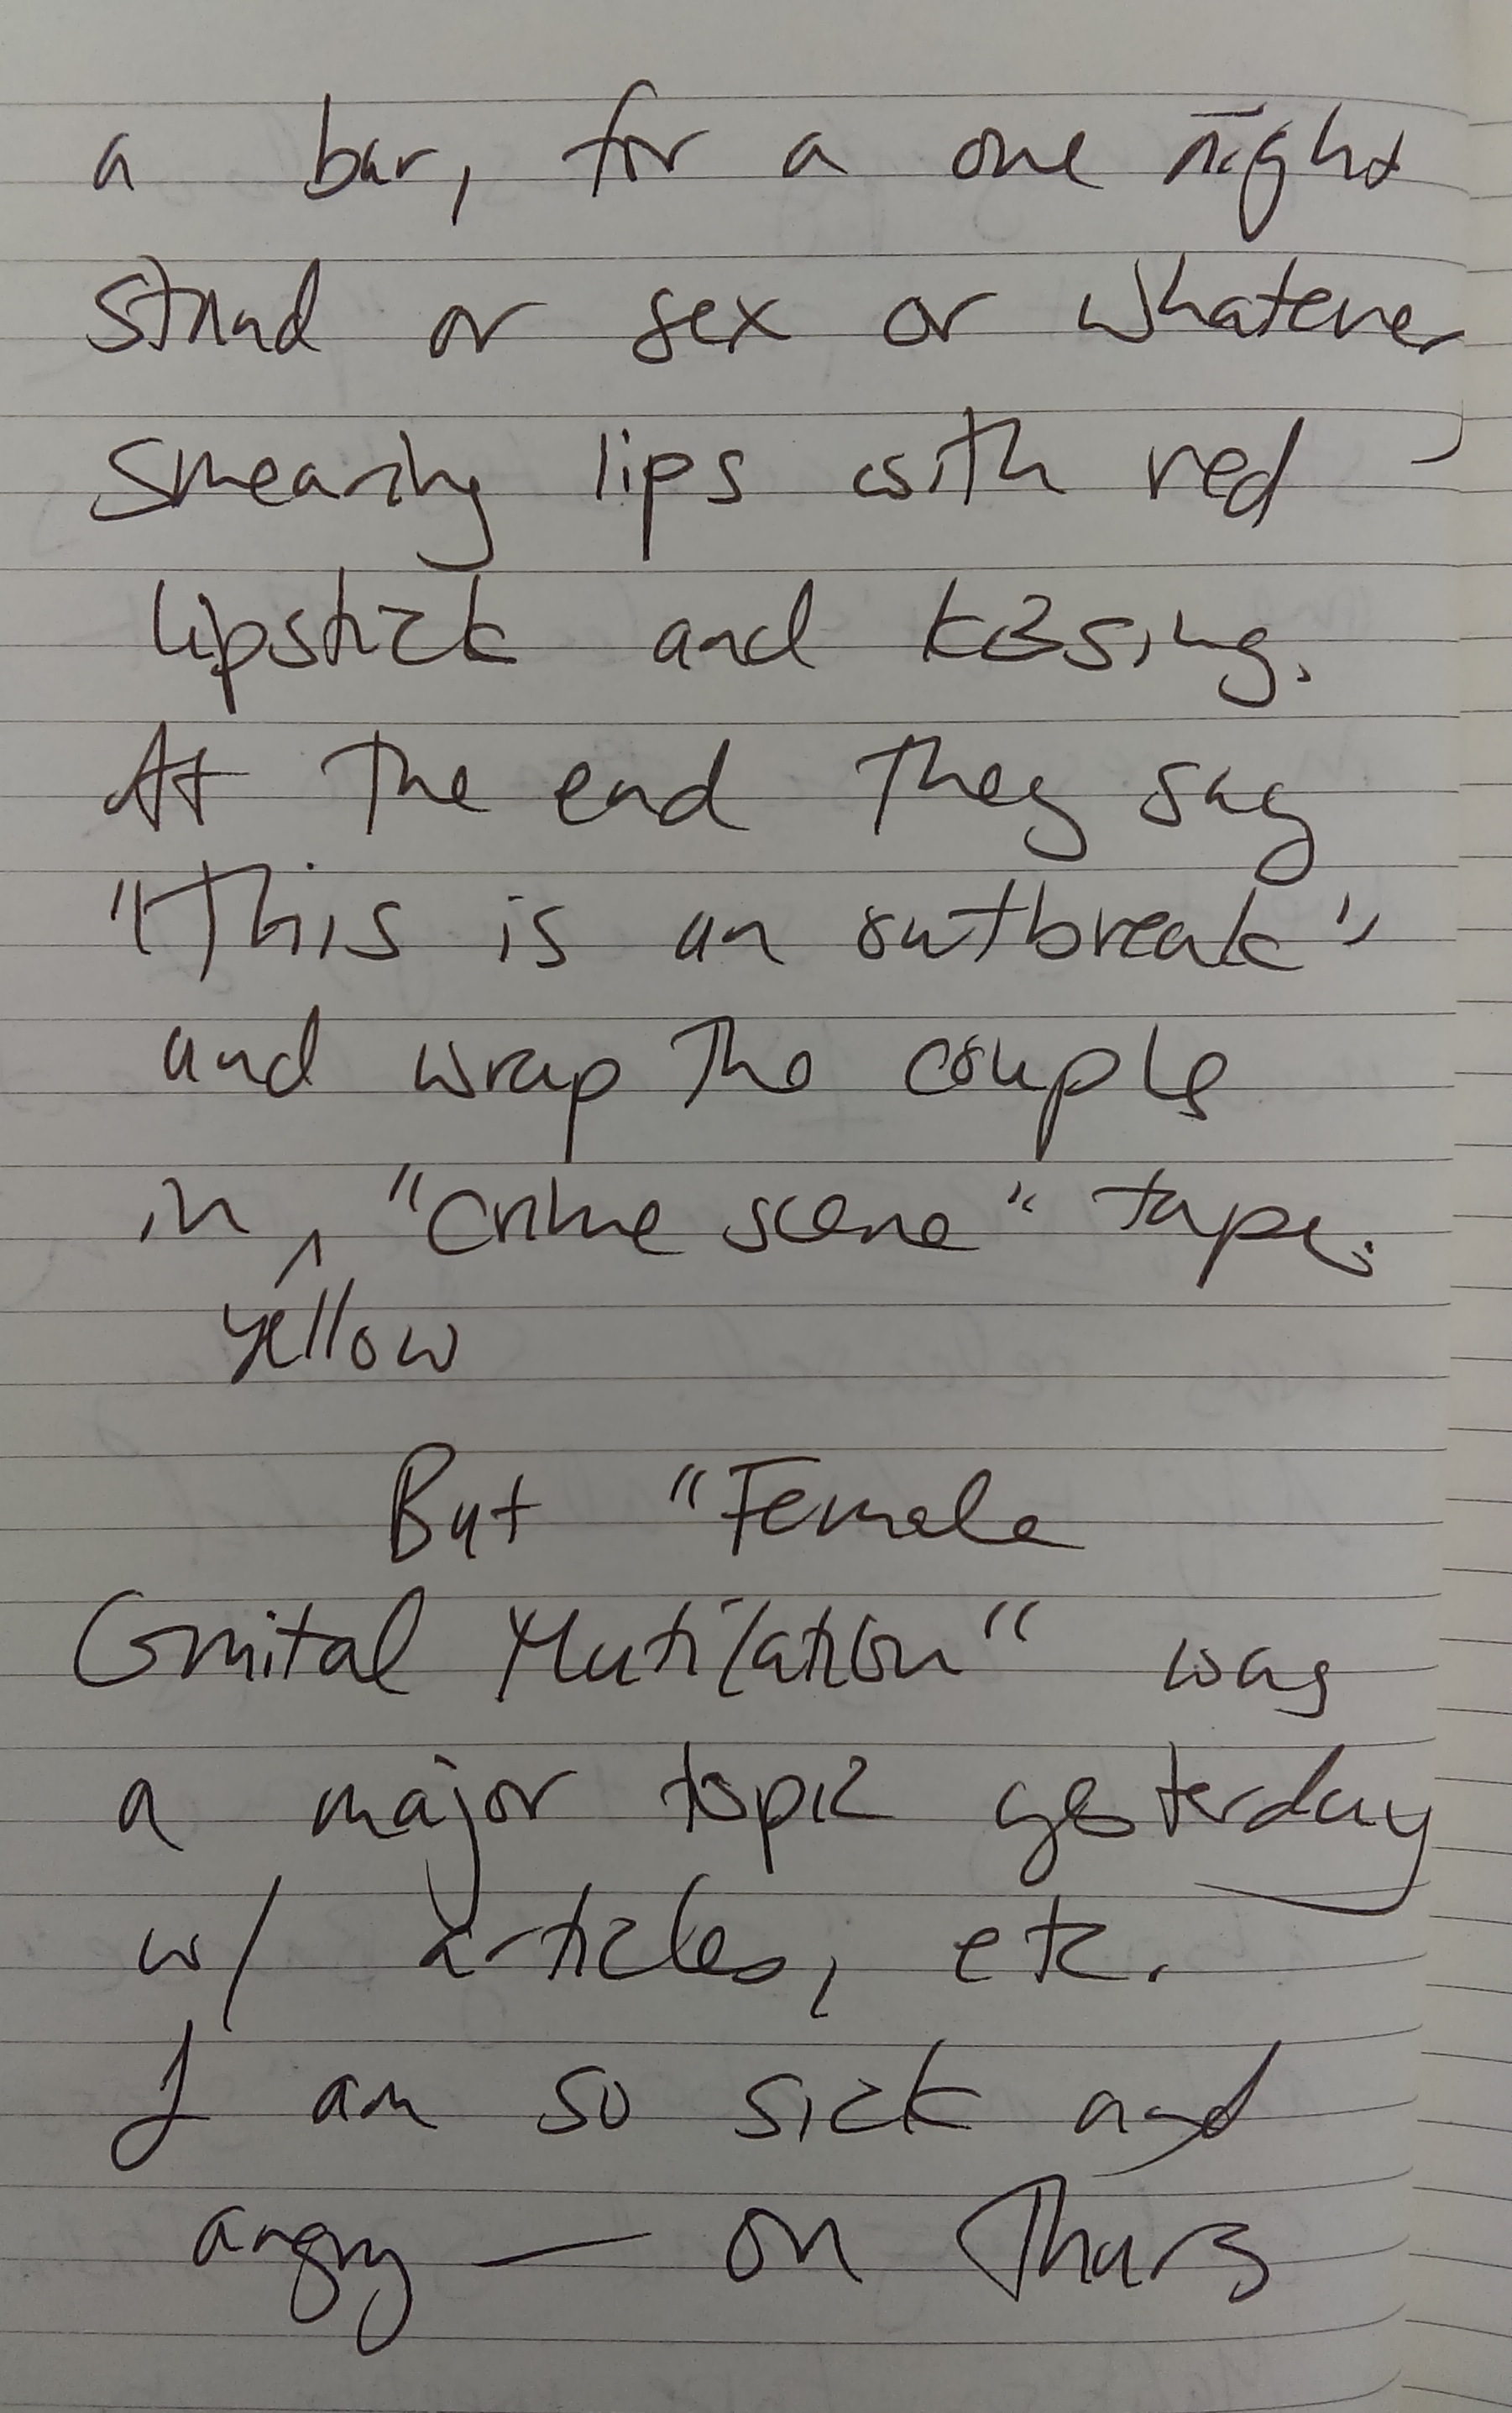 a bar, for a one night
stand or sex or whatever,
smearing lips with red
lipstick and kissing.
At the end they say
"This is an outbreak"
and wrap the couple
in ^ "crime scene" tape.
yellow
But "Female
Genital Mutilation" was
a major topic yesterday
w/ articles, etc.
I am so sick and
angry — on Thurs